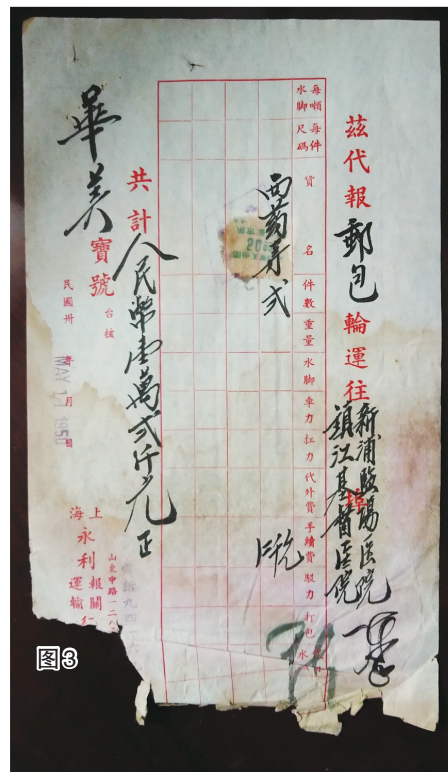 茲代報郵包輪運往
新浦鹽場医院
鎮江基督医院
每噸每件
水脚尺碼
貨名
件數
重量
水脚
車力
扛力
代外費
手續費
駁力
打包
西药
弍
共計人民幣壹萬弍仟元正
華美寶號台核
民國卅年月日
MAY 1950
上海永利報關運輸行
山東中路一二八
图3